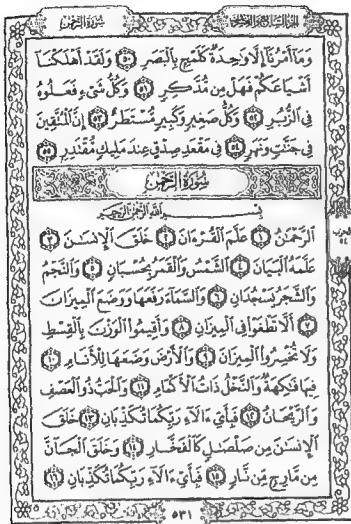 سُورَةُ الرَّحْمَٰن
وَمَآ أَمْرُنَآ إِلَّا وَٰحِدَةٌ كَلَمْحٍۭ بِٱلْبَصَرِ ٥٠ وَلَقَدْ أَهْلَكْنَآ
أَشْيَاعَكُمْ فَهَلْ مِن مُّدَّكِرٍ ٥١ وَكُلُّ شَىْءٍ فَعَلُوهُ
فِى ٱلزُّبُرِ ٥٢ وَكُلُّ صَغِيرٍ وَكَبِيرٍ مُّسْتَطَرٌ ٥٣ إِنَّ ٱلْمُتَّقِينَ
فِى جَنَّٰتٍ وَنَهَرٍ ٥٤ فِى مَقْعَدِ صِدْقٍ عِندَ مَلِيكٍ مُّقْتَدِرٍۭ ٥٥
سُورَةُ الرَّحْمَٰن
بِسْمِ ٱللَّهِ ٱلرَّحْمَٰنِ ٱلرَّحِيمِ
ٱلرَّحْمَٰنُ ١ عَلَّمَ ٱلْقُرْءَانَ ٢ خَلَقَ ٱلْإِنسَٰنَ ٣
عَلَّمَهُ ٱلْبَيَانَ ٤ ٱلشَّمْسُ وَٱلْقَمَرُ بِحُسْبَانٍ ٥ وَٱلنَّجْمُ
وَٱلشَّجَرُ يَسْجُدَانِ ٦ وَٱلسَّمَآءَ رَفَعَهَا وَوَضَعَ ٱلْمِيزَانَ
٧ أَلَّا تَطْغَوْا۟ فِى ٱلْمِيزَانِ ٨ وَأَقِيمُوا۟ ٱلْوَزْنَ بِٱلْقِسْطِ
وَلَا تُخْسِرُوا۟ ٱلْمِيزَانَ ٩ وَٱلْأَرْضَ وَضَعَهَا لِلْأَنَامِ ١٠
فِيهَا فَٰكِهَةٌ وَٱلنَّخْلُ ذَاتُ ٱلْأَكْمَامِ ١١ وَٱلْحَبُّ ذُو ٱلْعَصْفِ
وَٱلرَّيْحَانُ ١٢ فَبِأَىِّ ءَالَآءِ رَبِّكُمَا تُكَذِّبَانِ ١٣ خَلَقَ
ٱلْإِنسَٰنَ مِن صَلْصَٰلٍ كَٱلْفَخَّارِ ١٤ وَخَلَقَ ٱلْجَآنَّ
مِن مَّارِجٍ مِّن نَّارٍ ١٥ فَبِأَىِّ ءَالَآءِ رَبِّكُمَا تُكَذِّبَانِ ١٦
الحزب
٥٣١